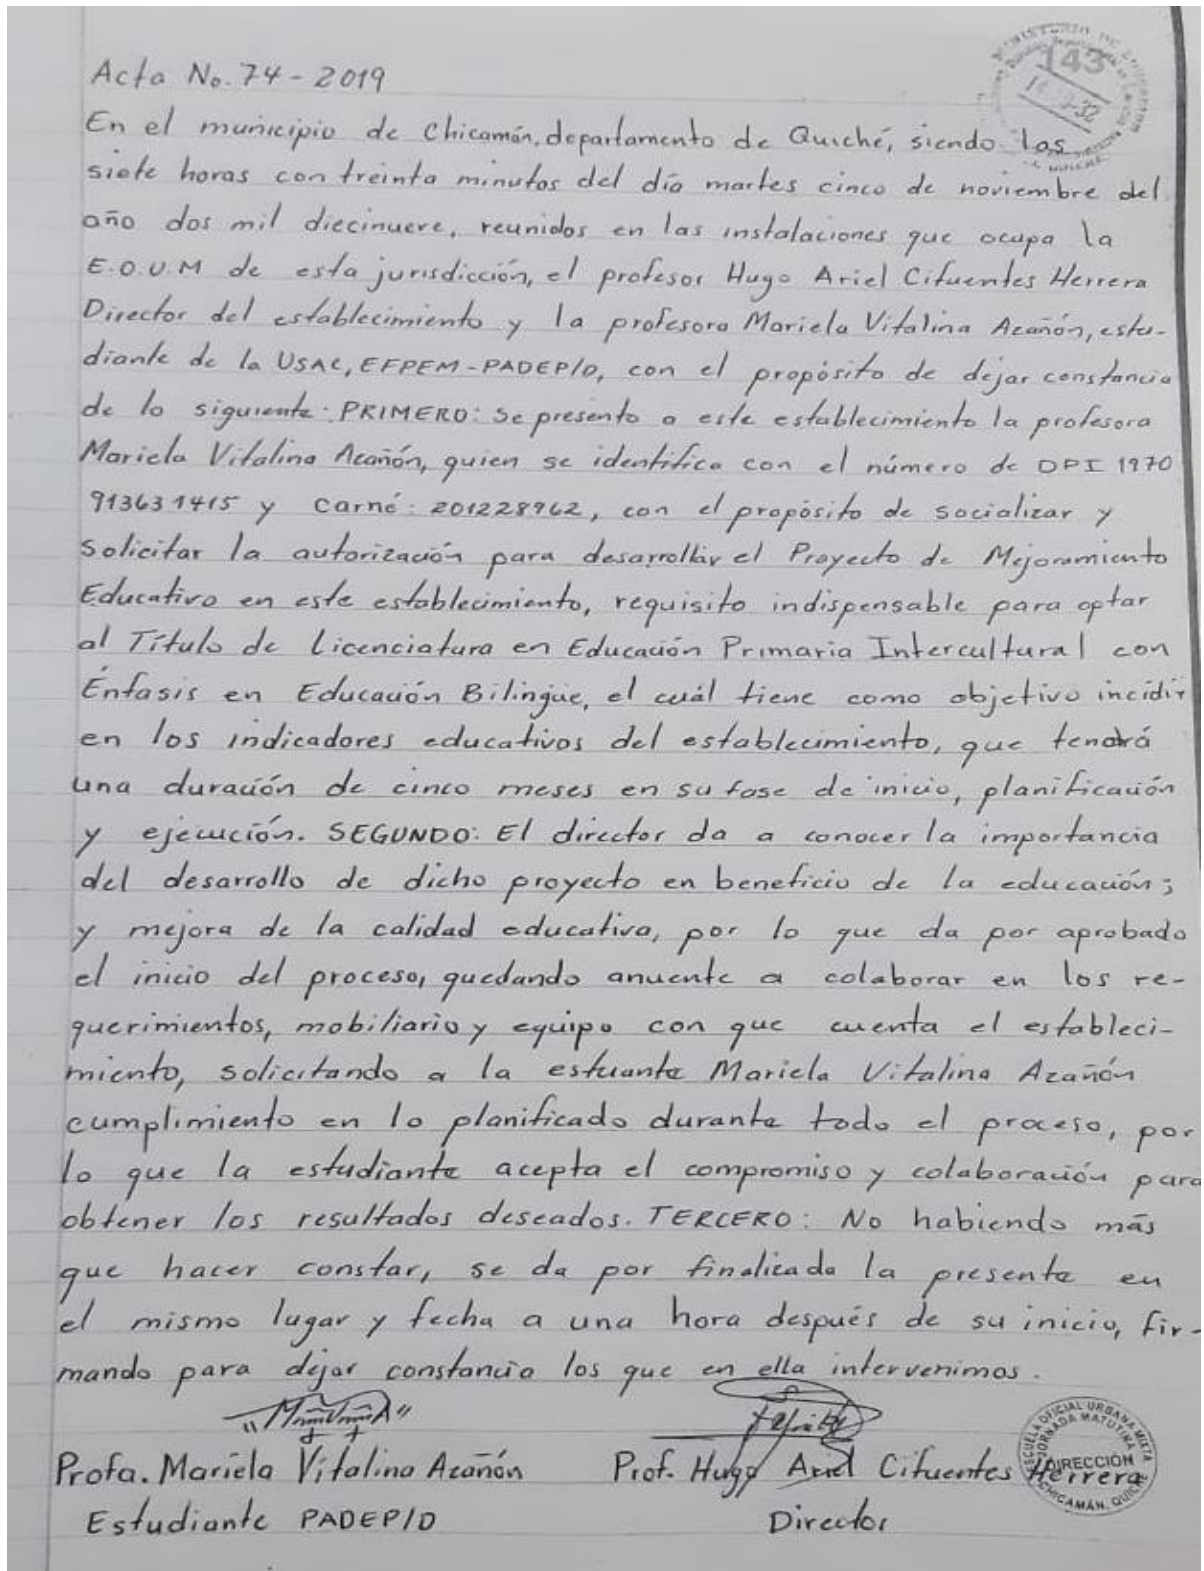 MINISTERIO DE
143
Acta No. 74 - 2019
En el municipio de Chicamán, departamento de Quiché, siendo las
siete horas con treinta minutos del día martes cinco de noviembre del
año dos mil diecinueve, reunidos en las instalaciones que ocupa la
E.O.U.M de esta jurisdicción, el profesor Hugo Ariel Cifuentes Herrera
Director del establecimiento y la profesora Mariela Vitalina Azañón, estu-
diante de la USAC, EFPEM-PADEP/D, con el propósito de dejar constancia
de lo siguiente: PRIMERO: Se presento a este establecimiento la profesora
Mariela Vitalina Azañón, quien se identifica con el número de DPI 1970
913631415 y Carné: 201228962, con el propósito de socializar y
solicitar la autorización para desarrollar el Proyecto de Mejoramiento
Educativo en este establecimiento, requisito indispensable para optar
al Título de Licenciatura en Educación Primaria Intercultural con
Énfasis en Educación Bilingüe, el cuál tiene como objetivo incidir
en los indicadores educativos del establecimiento, que tendrá
una duración de cinco meses en su fase de inicio, planificación
y ejecución. SEGUNDO: El director da a conocer la importancia
del desarrollo de dicho proyecto en beneficio de la educación;
y mejora de la calidad educativa, por lo que da por aprobado
el inicio del proceso, quedando anuente a colaborar en los re-
querimientos, mobiliario y equipo con que cuenta el estableci-
miento, solicitando a la estuante Mariela Vitalina Azañón
cumplimiento en lo planificado durante todo el proceso, por
lo que la estudiante acepta el compromiso y colaboración para
obtener los resultados deseados. TERCERO: No habiendo más
que hacer constar, se da por finalizada la presente en
el mismo lugar y fecha a una hora después de su inicio, fir-
mando para dejar constancia los que en ella intervenimos.
Profa. Mariela Vitalina Azañón
Estudiante PADEP/D
Prof. Hugo Ariel Cifuentes Herrera
Director
ESCUELA OFICIAL URBANA MIXTA
JORNADA MATUTINA
DIRECCIÓN
CHICAMÁN, QUICHÉ